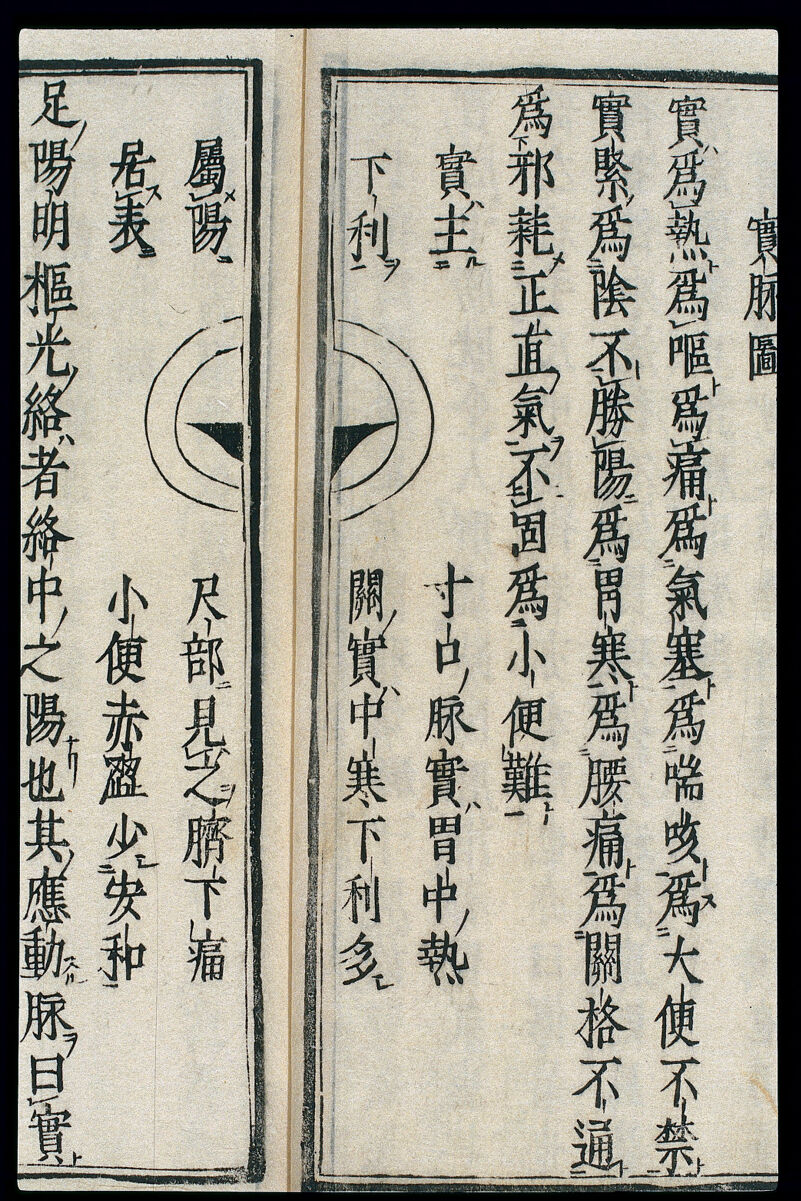 實脉圖
實爲熱爲嘔爲痛爲氣塞爲喘咳爲大便不禁
實緊爲陰不勝陽爲胃寒爲腰痛爲關格不通
爲邪耗正直氣不固爲小便難
實主　寸口脉實胃中熱
下利　關實中寒下利多
屬陽　尺部見之臍下痛
居表　小便赤澀少安和
足陽明樞光絡者絡中之陽也其應動脉曰實